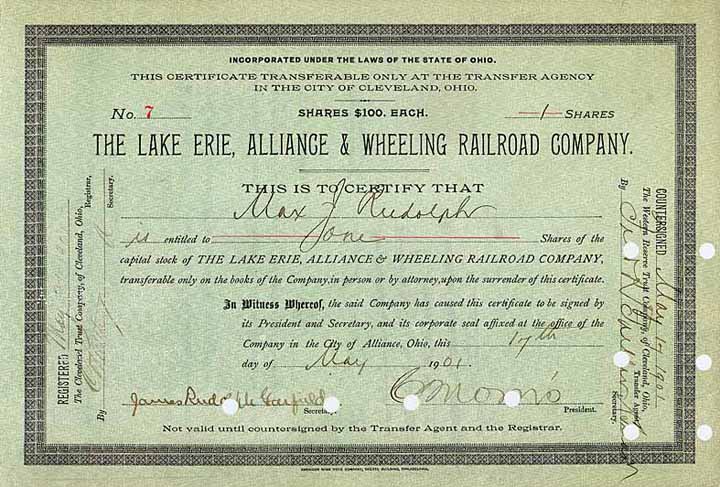 INCORPORATED UNDER THE LAWS OF THE STATE OF OHIO.
THIS CERTIFICATE TRANSFERABLE ONLY AT THE TRANSFER AGENCY
IN THE CITY OF CLEVELAND, OHIO.
No. 7 SHARES $100. EACH. 1 SHARES
THE LAKE ERIE, ALLIANCE & WHEELING RAILROAD COMPANY.
THIS IS TO CERTIFY THAT
Max J Rudolph
is entitled to one Shares of the
capital stock of THE LAKE ERIE, ALLIANCE & WHEELING RAILROAD COMPANY,
transferable only on the books of the Company, in person or by attorney, upon the surrender of this certificate.
In Witness Whereof, the said Company has caused this certificate to be signed by
its President and Secretary, and its corporate seal affixed at the office of the
Company in the City of Alliance, Ohio, this 17th
day of May 1901.
James Rudolph Garfield
Secretary. President.
Not valid until countersigned by the Transfer Agent and the Registrar.
REGISTERED May
The Cleveland Trust Company, of Cleveland, Ohio,
Registrar,
By
Secretary.
COUNTERSIGNED May 17 1901
The Western Reserve Trust Company, of Cleveland, Ohio,
Transfer Agent,
By
Secretary.
AMERICAN BANK NOTE COMPANY, PHILADELPHIA.